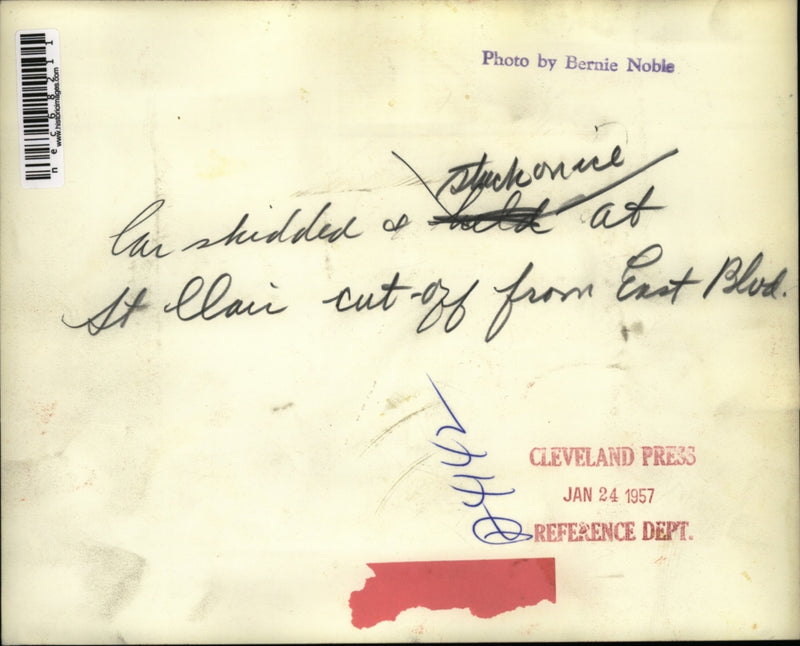 Photo by Bernie Noble
nec68211
www.historicimages.com
stuck on ice
Car skidded & held at
St Clair cut-off from East Blvd.
CLEVELAND PRESS
JAN 24 1957
REFERENCE DEPT.